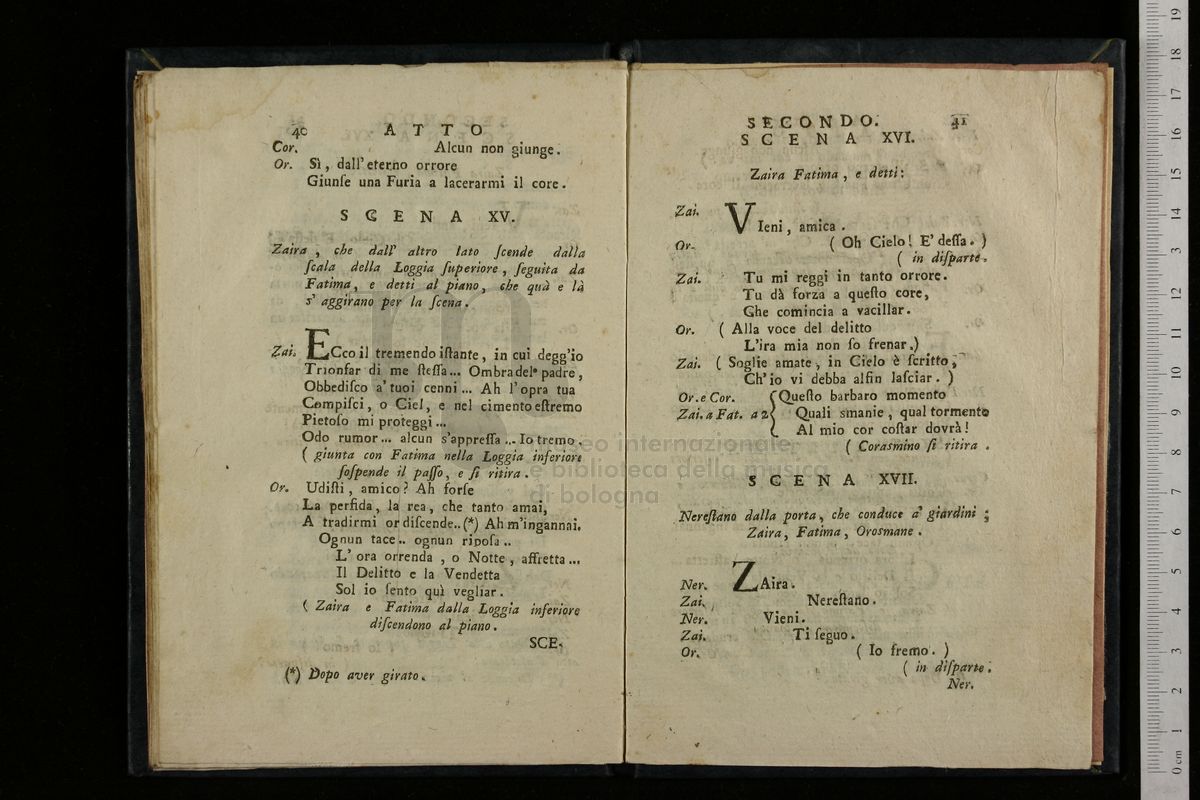 40 ATTO
Cor. Alcun non giunge.
Or. Sì, dall'eterno orrore
Giunſe una Furia a lacerarmi il core.
SCENA XV.
Zaira, che dall' altro lato ſcende dalla
ſcala della Loggia ſuperiore, ſeguita da
Fatima, e detti al piano, che quà e là
s' aggirano per la ſcena.
Zai. ECco il tremendo iſtante, in cui degg'io
Trionfar di me ſteſſa... Ombra del padre,
Obbediſco a' tuoi cenni... Ah l'opra tua
Compiſci, o Ciel, e nel cimento eſtremo
Pietoſo mi proteggi...
Odo rumor... alcun s'appreſſa... Io tremo.
( giunta con Fatima nella Loggia inferiore
ſoſpende il paſſo, e ſi ritira.
Or. Udiſti, amico? Ah forſe
La perfida, la rea, che tanto amai,
A tradirmi or diſcende..(*) Ah m'ingannai.
Ognun tace.. ognun ripoſa..
L' ora orrenda, o Notte, affretta...
Il Delitto e la Vendetta
Sol io ſento quì vegliar.
( Zaira e Fatima dalla Loggia inferiore
diſcendono al piano.
SCE-
(*) Dopo aver girato.
SECONDO. 41
SCENA XVI.
Zaira Fatima, e detti:
Zai. VIeni, amica.
Or. ( Oh Cielo! E' deſſa. )
( in diſparte.
Zai. Tu mi reggi in tanto orrore.
Tu dà forza a queſto core,
Che comincia a vacillar.
Or. ( Alla voce del delitto
L'ira mia non ſo frenar.)
Zai. ( Soglie amate, in Cielo è ſcritto,
Ch'io vi debba alfin laſciar. )
Or. e Cor. Queſto barbaro momento
Zai. a Fat. a 2 Quali smanie, qual tormento
Al mio cor coſtar dovrà!
( Corasmino ſi ritira.
SCENA XVII.
Nereſtano dalla porta, che conduce a' giardini;
Zaira, Fatima, Orosmane.
Ner. ZAira.
Zai. Nereſtano.
Ner. Vieni.
Zai. Ti ſeguo.
Or. ( Io fremo. )
( in diſparte.
Ner.
museo internazionale
e biblioteca della musica
di bologna
0 cm 1 2 3 4 5 6 7 8 9 10 11 12 13 14 15 16 17 18 19